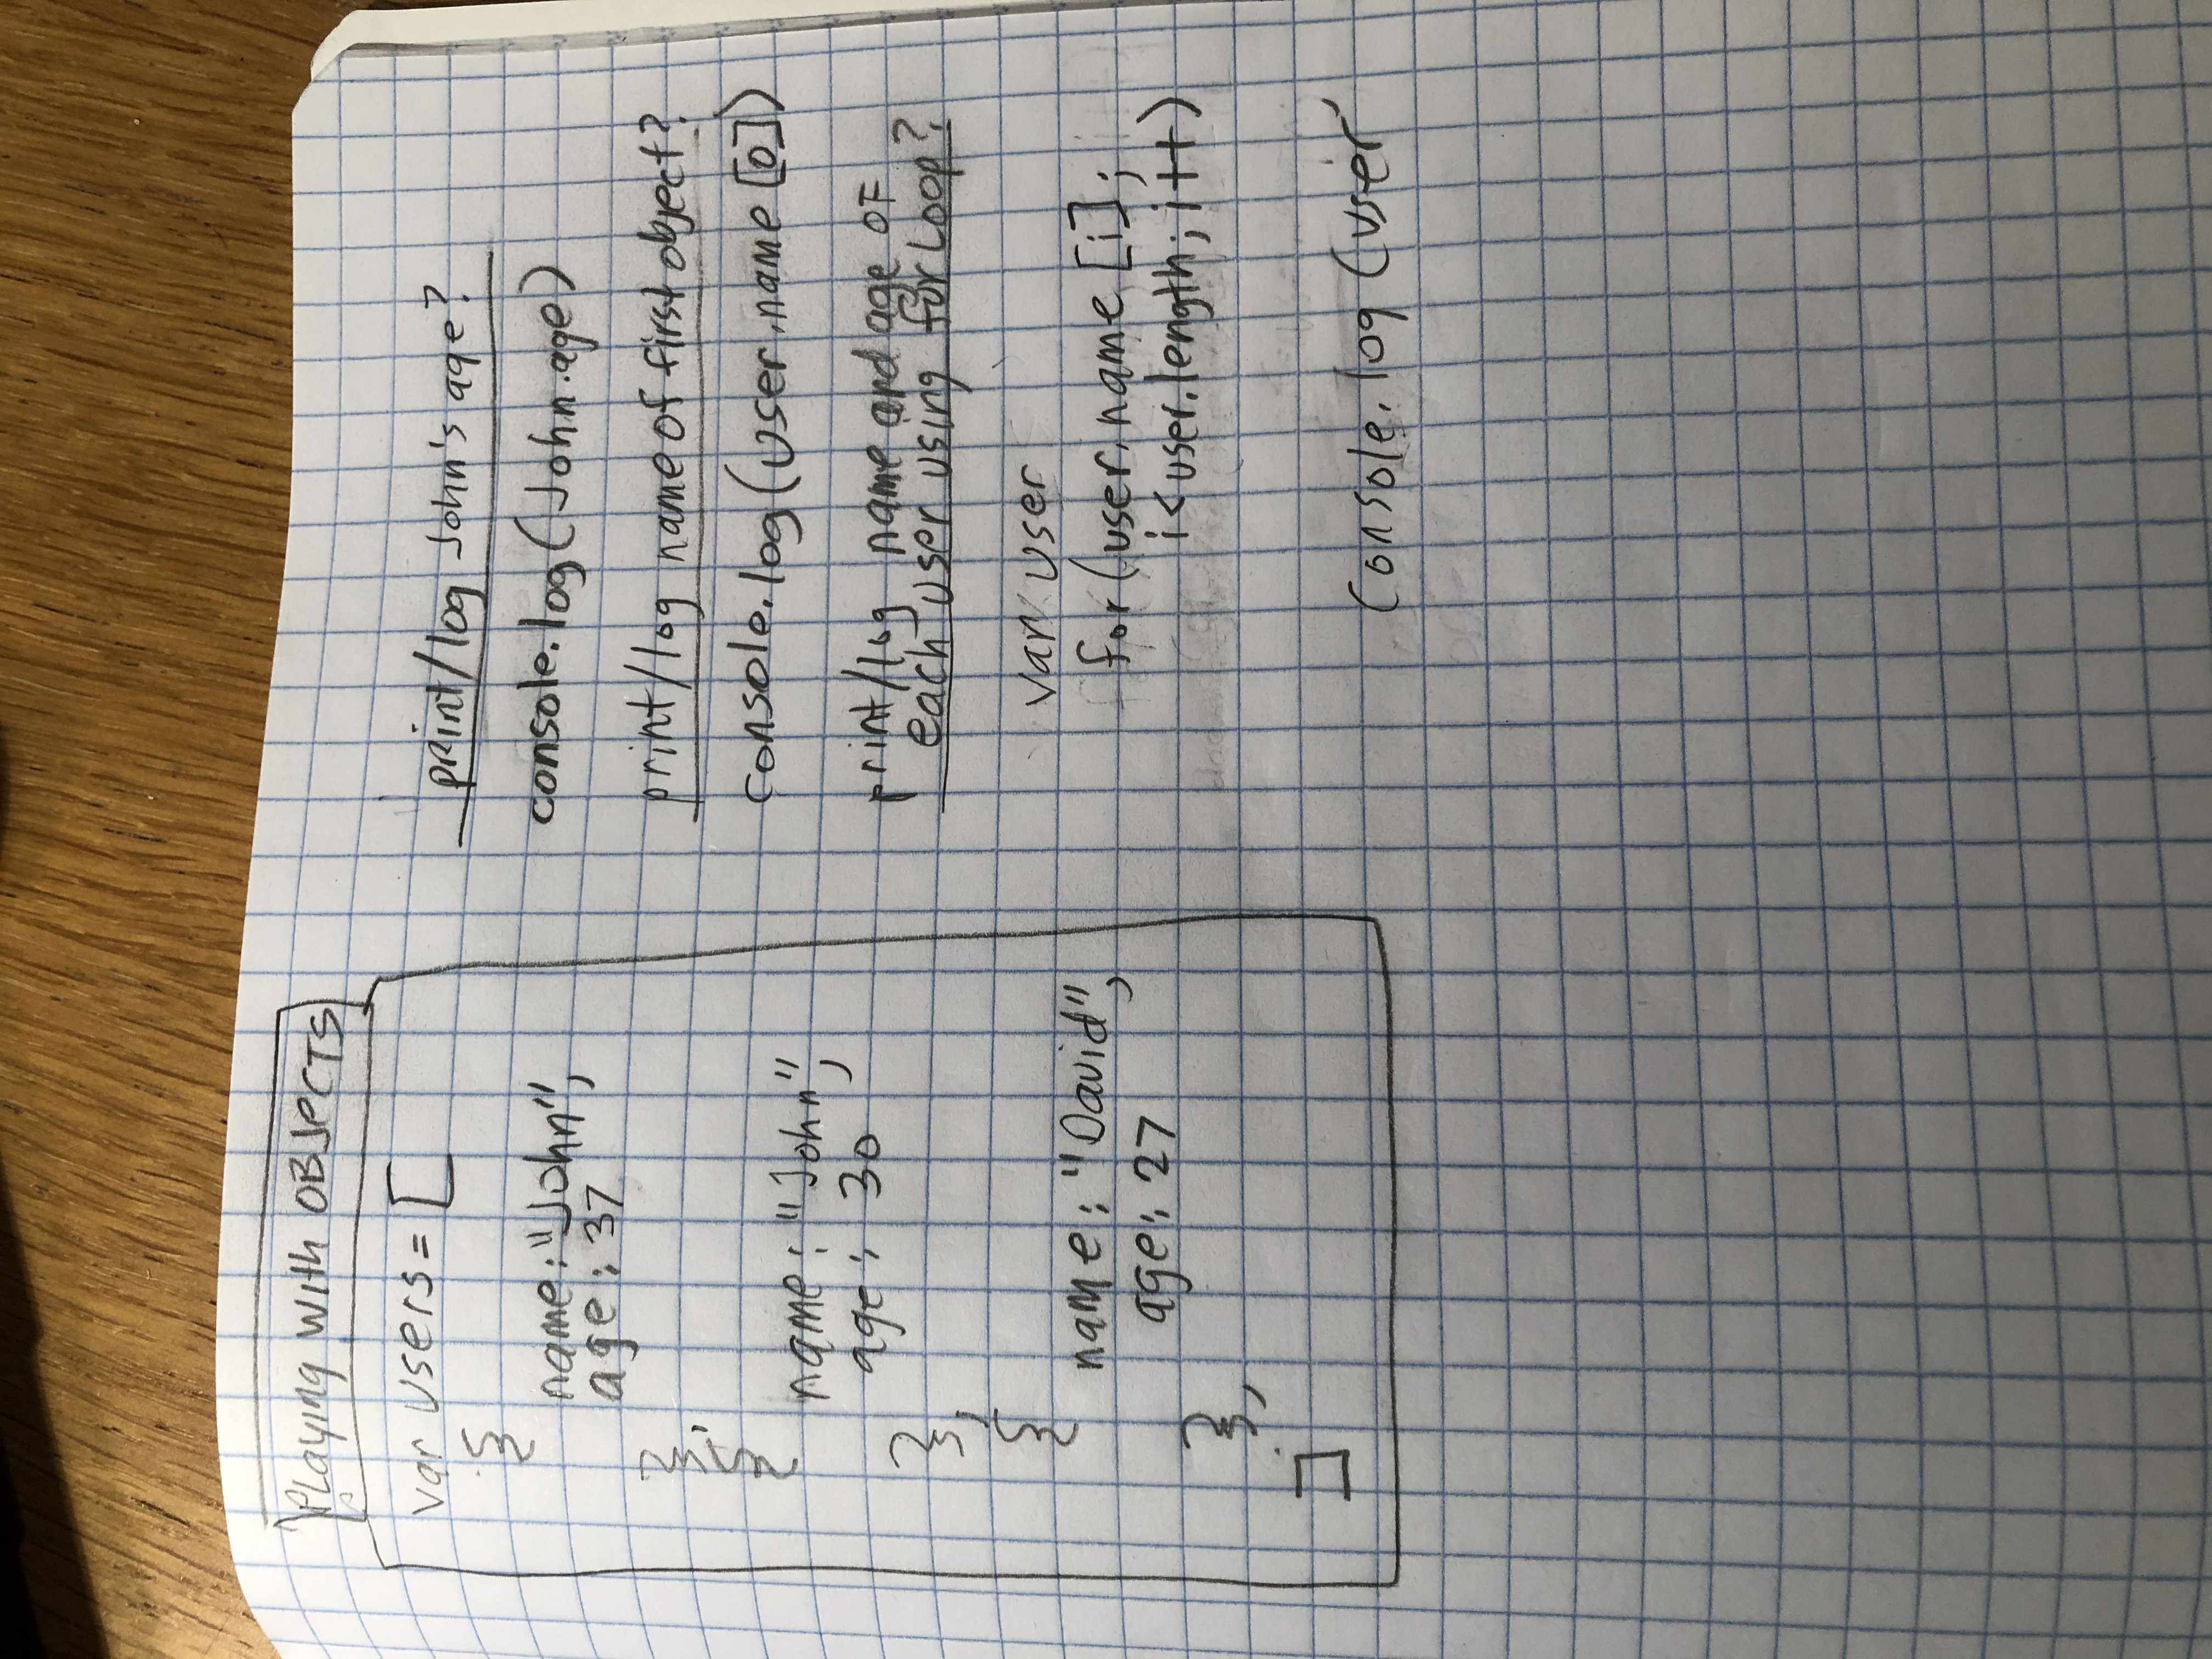 PLaying with OBJECTS
var users = [
{
name: "John",
age: 37
},
{
name: "John",
age: 30
},
{
name: "David",
age: 27
},
]
print/log John's age?
console.log(John.age)
print/log name of first object?
console.log(user.name[0])
print/log name and age OF
each user using for Loop?
var user
for(user.name[i];
i<user.length; i++)
console.log(user